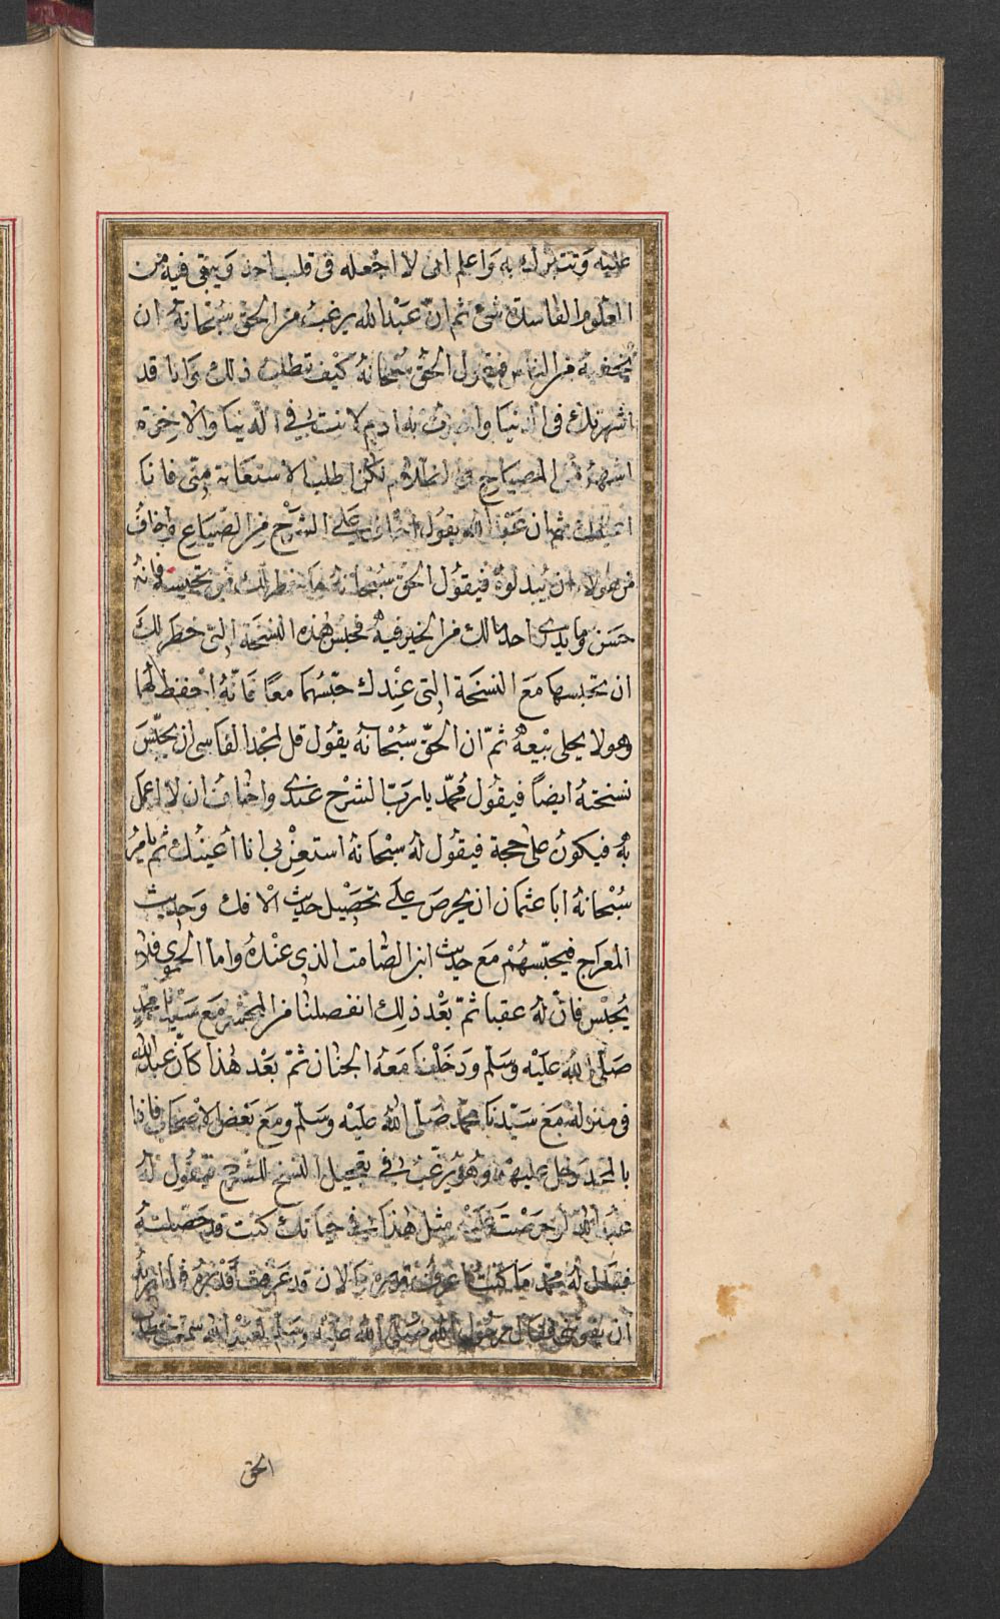 عليه وتتبرك به واعلم انى لا اجعله فى قلب احد ويبقى فيه من
العلوم الفاسدة شئ ثم ان عبد الله يرغب من الحق سبحانه ان
يخفيه من الناس فيقول الحق سبحانه كيف تطلب ذلك وانا قد
اشهرتك فى الدنيا به لانت فى الدنيا والاخرة
اشهر من المصباح فى الظلام لكن اطلب الاستعانة منى فانا
اعينك ثم ان عبد الله يقول اخاف على الشرح من الضياع واخاف
من هولاء ان يبدلوه فيقول الحق سبحانه ما خطر لك من تحبيسه فانه
حسن وما يدرى احد ما لك من الخير فيه فحبس هذه النسخة التى خطر لك
ان تحبسها مع النسخة التى عندك حبسهما معا فانه احفظ لهما
وهولا يحل بيعه ثم ان الحق سبحانه يقول قل لمحمد الفاسى ان يحبس
نسخته ايضاً فيقول محمد يا رب الشرح عندى واخاف ان لا اعمل
به فيكون على حجة فيقول له سبحانه استعن بى انا اعينك ثم يامر
سبحانه ابا عثمان ان يحرص على تحصيل حديث الافك وحديث
المعراج فيحبسهم مع حديث ابن الصامت الذى عنده واما الحموى فلا
يحبس فان له عقبا ثم بعد ذلك انفصلنا من المحشر مع سيدنا محمد
صلى الله عليه وسلم ودخلنا معه الجنان ثم بعد هذا كان عبد الله
فى منزله مع سيدنا محمد صلى الله عليه وسلم ومع بعض الاصحاب فاذا
دخل عليهم وهو يرغب فى تعجيل النسخ للشرح فيقول له
عبد الله لو حرصت عليه مثل هذا فى حياتك كنت قد حصلته
فقال له محمد ما كنت اعرف قدره والان قد عرفت قدره
ان يفوتنى فقال رسول الله صلى الله عليه وسلم لعبد الله
الحق